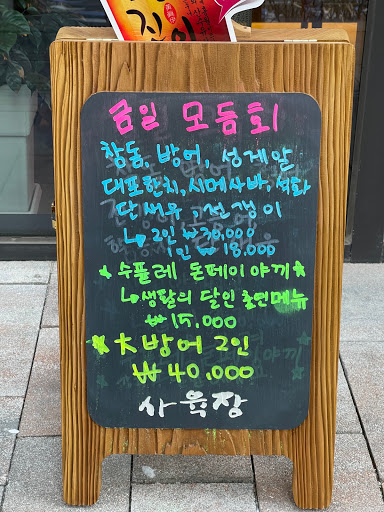 금일 모듬회
참돔, 방어, 성게알
대포한치, 시메사바, 석화
단새우, 전갱이
↳ 2인 ₩30,000
1인 ₩18,000
★ 수플레 돈페이야끼 ★
↳ 생활의 달인 출연메뉴
₩15,000
★ 大방어 2인
₩40,000
사육장